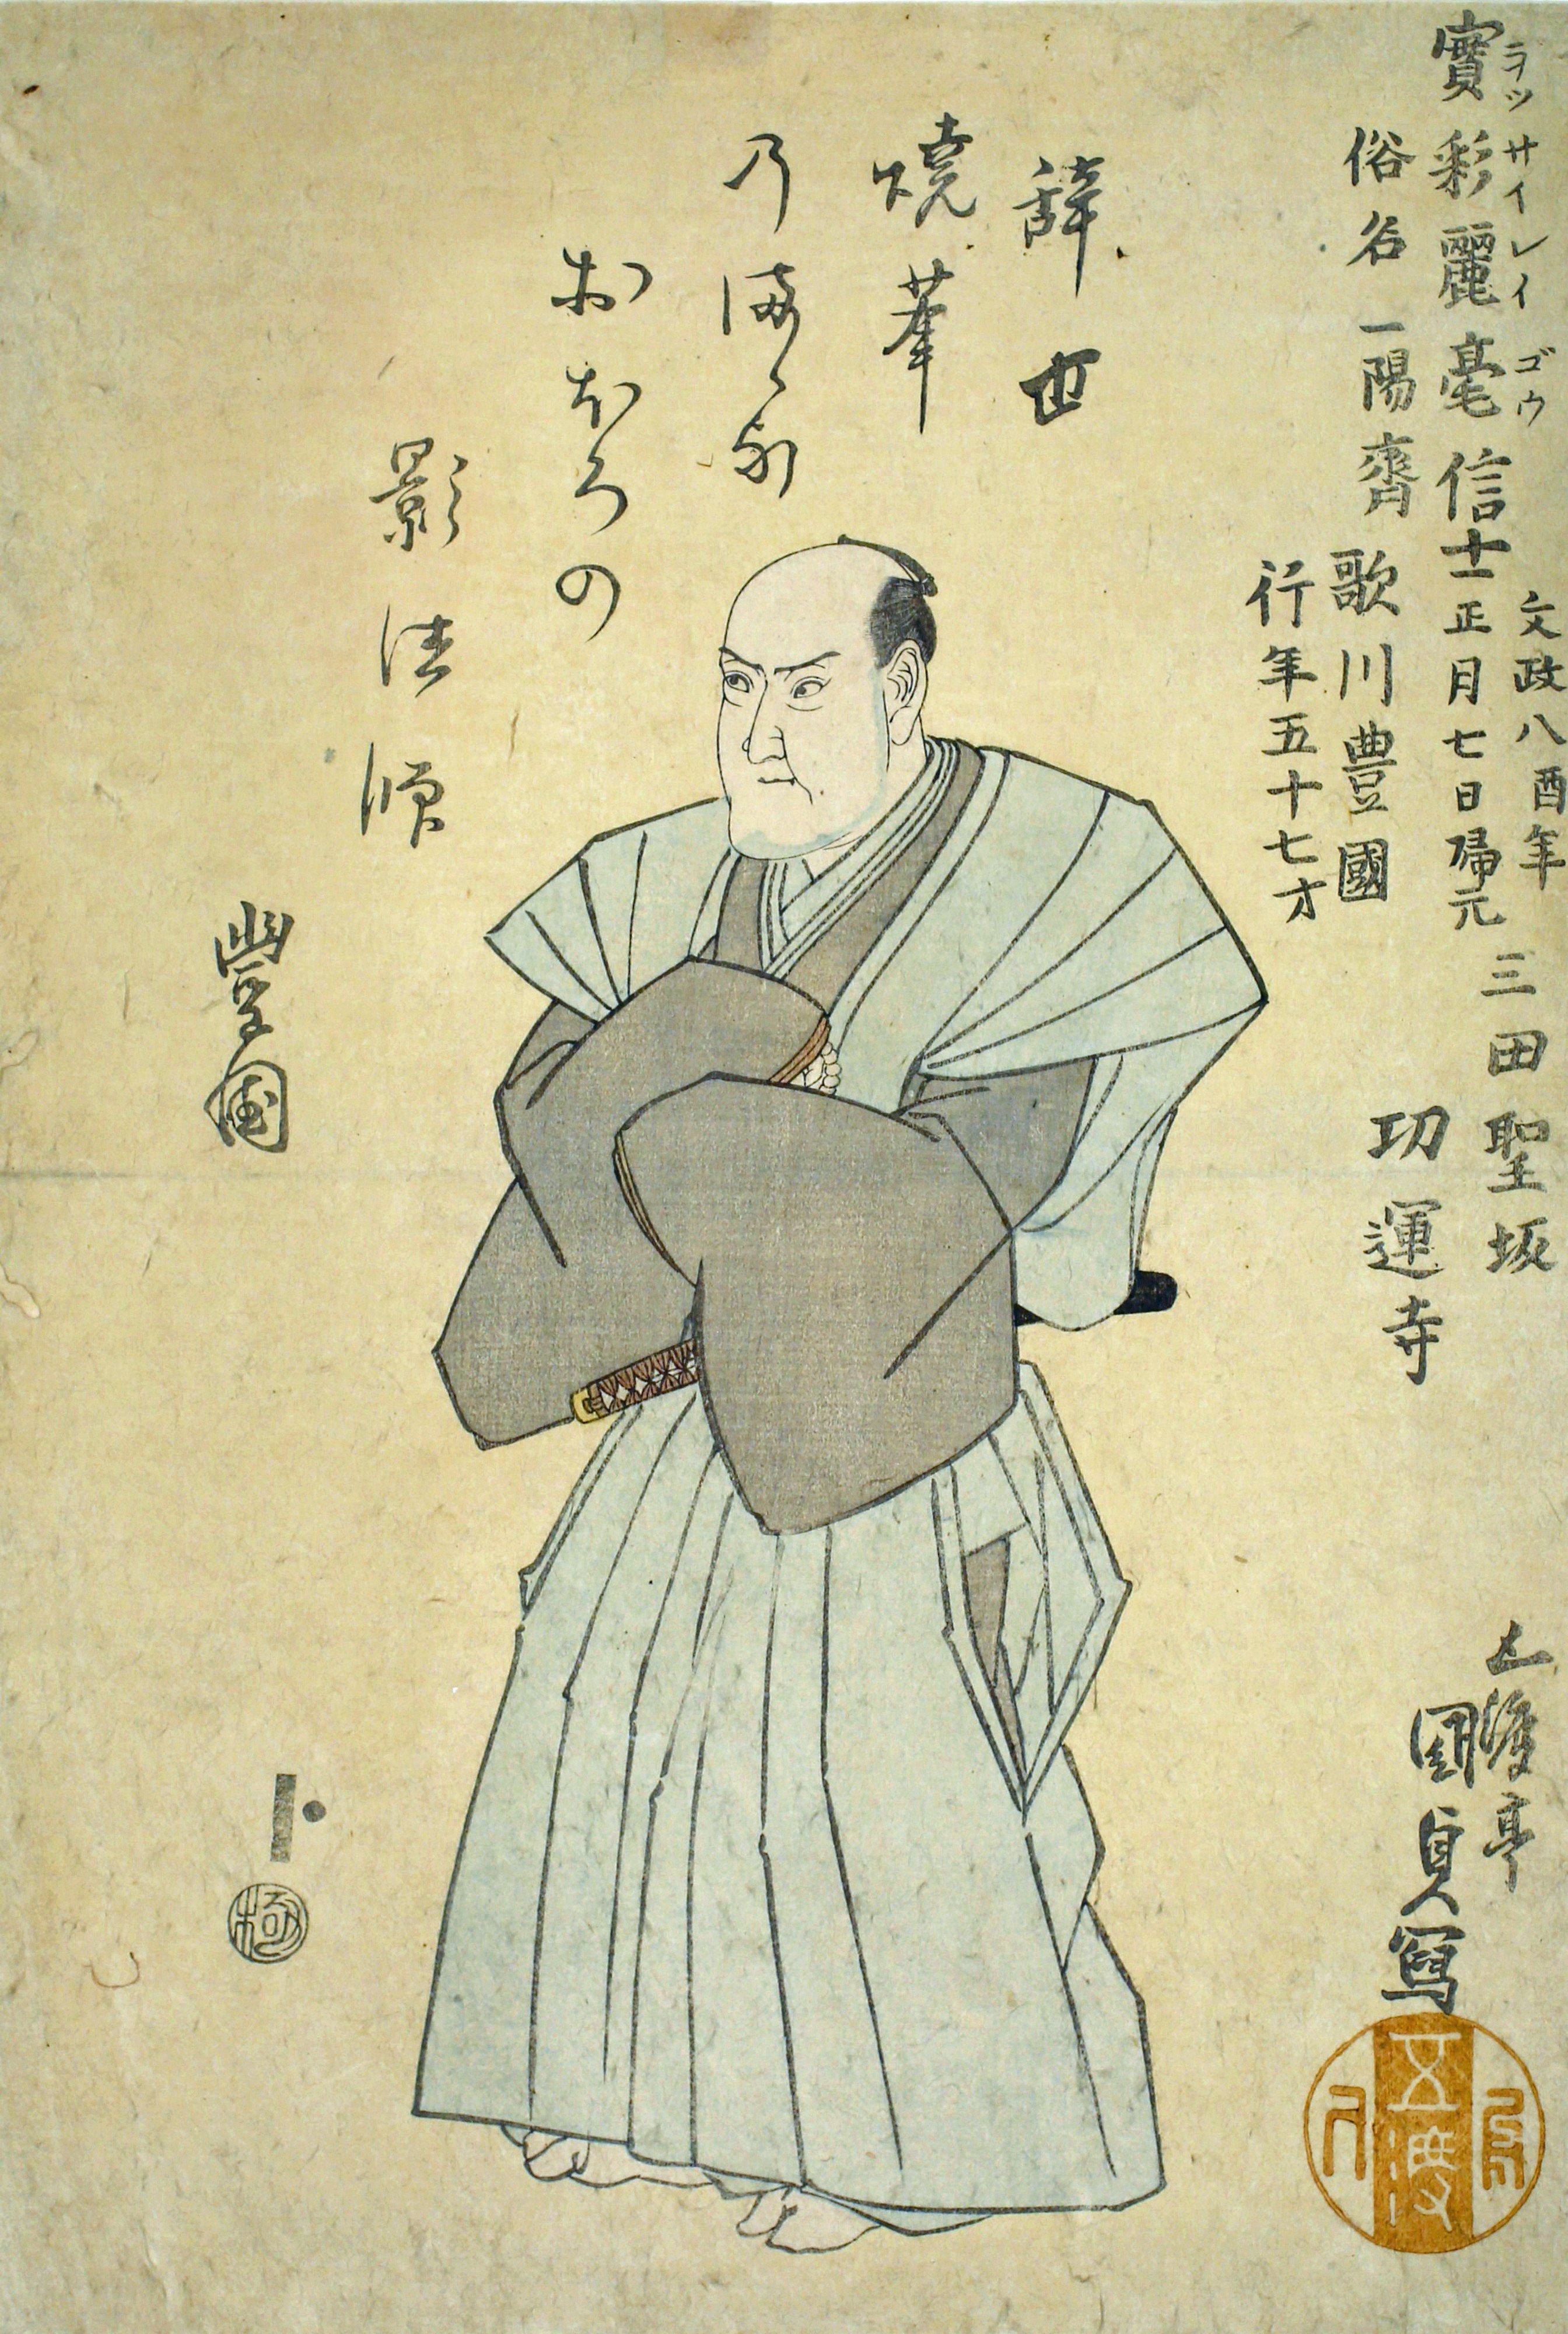 實彩麗毫信士
ラッサイレイゴウ
文政八酉年
正月七日帰元
俗名 一陽齋
歌川豊國
行年五十七才
三田聖坂
功運寺
辞世
焼筆
乃まゝ
おぼろの
影法師
豊国
五渡亭
國貞寫
極
五渡